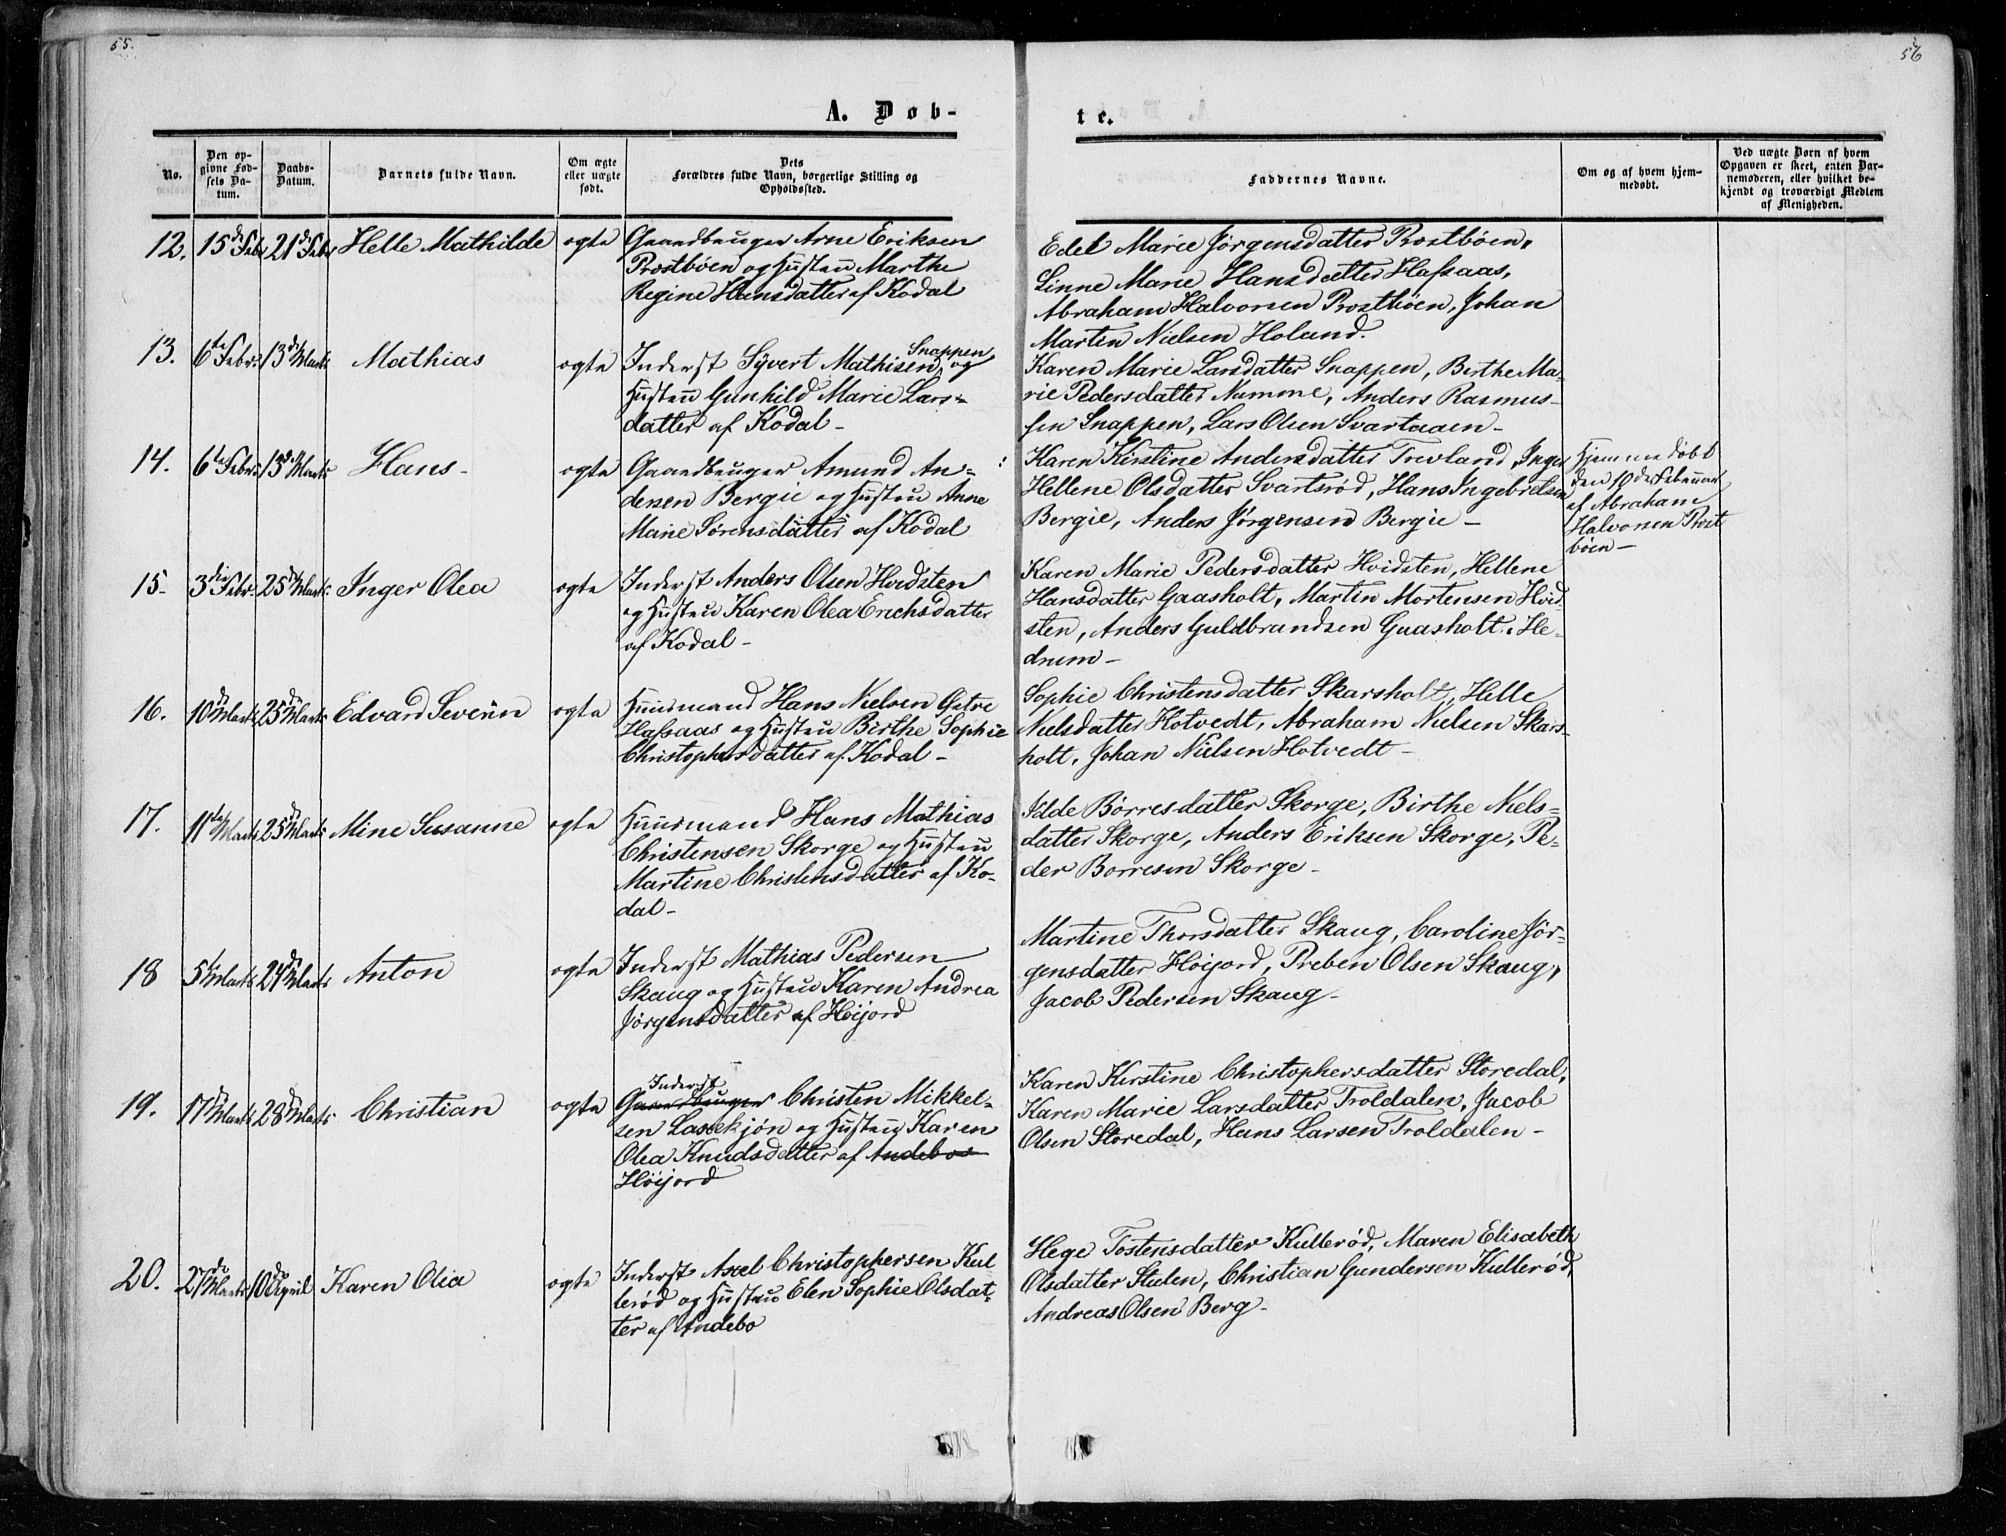 55.
56
A. Døb-
te.
No.
Den op-
givne Fød-
sels Da-
tum.
Daabs-
Datum.
Barnets fulde Navn.
Om ægte
eller uægte
født.
Dets
Forældres fulde Navn, borgerlige Stilling og
Opholdssted.
Faddernes Navne.
Om og af hvem hjem-
medøbt.
Ved uægte Børn af hvem
Opgaven er skeet, enten Bar-
nemoderen, eller hvilket be-
kjendt og troværdigt Medlem
af Menigheden.
12. 15de Febr 21de Febr Helle Mathilde ægte Gaardbruger Arne Eriksen
Prestbøen og Hustru Marthe
Regine Hansdatter af Kodal
Edel Marie Jørgensdatter Prestbøen,
Linne Marie Hansdatter Hafsaas,
Abraham Halvorsen Prestbøen, Johan
Martin Nielsen Holand.
13. 6te Febr. 13de Marts Mathias ægte Inderst Syvert Mathisen Snappen og
Hustru Gunhild Marie Lars-
datter af Kodal -
Karen Marie Larsdatter Snappen, Birthe Ma-
rie Pedersdatter Numme, Anders Rasmus-
sen Snappen, Lars Olsen Svartaaen -
14. 6te Febr. 13de Marts Hans - ægte Gaardbruger Amund An-
dersen Bergie og Hustru Anne
Marie Sørensdatter af Kodal
Karen Kirstine Andersdatter Trevland, Inger
Hellene Olsdatter Svartsrød, Hans Ingebretsen
Bergie, Anders Jørgensen Bergie -
Hjemmedøbt
den 10de Februar
af Abraham
Halvorsen Prest
bøen -
15. 3die Febr. 25de Marts Inger Olea ægte Inderst Anders Olsen Hvidsten
og Hustru Karen Olea Erichsdatter
af Kodal -
Karen Marie Pedersdatter Hvidsten, Hellene
Hansdatter Gaasholt, Martin Mortensen Hvid
sten, Anders Guldbrandsen Gaasholt. He-
drum -
16. 10de Marts 25de Marts Edvard Severin ægte Huusmand Hans Nielsen Østre
Hafsaas og Hustru Birthe Sophie
Christophersdatter af Kodal -
Sophie Christensdatter Skarsholt, Helle
Nielsdatter Hotvedt, Abraham Nielsen Skars-
holt, Johan Nielsen Hotvedt -
17. 11te Marts 25de Marts Mine Susanne ægte Huusmand Hans Mathias
Christensen Skorge og Hustru
Martine Christensdatter af Ko-
dal -
Ilde Børresdatter Skorge, Birthe Niels-
datter Skorge, Anders Eriksen Skorge, Pe-
der Borresen Skorge -
18 5te Marts 24de Marts Anton ægte Inderst Mathias Pedersen
Skaug og Hustru Karen Andrea
Jørgensdatter af Høijord
Martine Thorsdatter Skaug, Caroline Jør-
gensdatter Høijord, Preben Olsen Skaug,
Jacob Pedersen Skaug -
19. 17de Marts 28de Marts Christian ægte Inderst
Gaardbruger Christen Mikkel-
sen Lassekjøn og Hustru Karen
Olea Knudsdatter af Andebo
Høijord
Karen Kirstine Christophersdatter Storedal,
Karen Marie Larsdatter Troldalen, Jacob
Olsen Storedal, Hans Larsen Troldalen -
20. 27de Marts 10de April Karen Olia ægte Inderst Axel Christophersen Kul-
lerød og Hustru Elen Sophie Olsdat-
ter af Andebo
Hege Tostensdatter Kullerød, Maren Elisabeth
Olsdatter Stulen, Christian Gundersen Kullerød,
Andreas Olsen Berg -